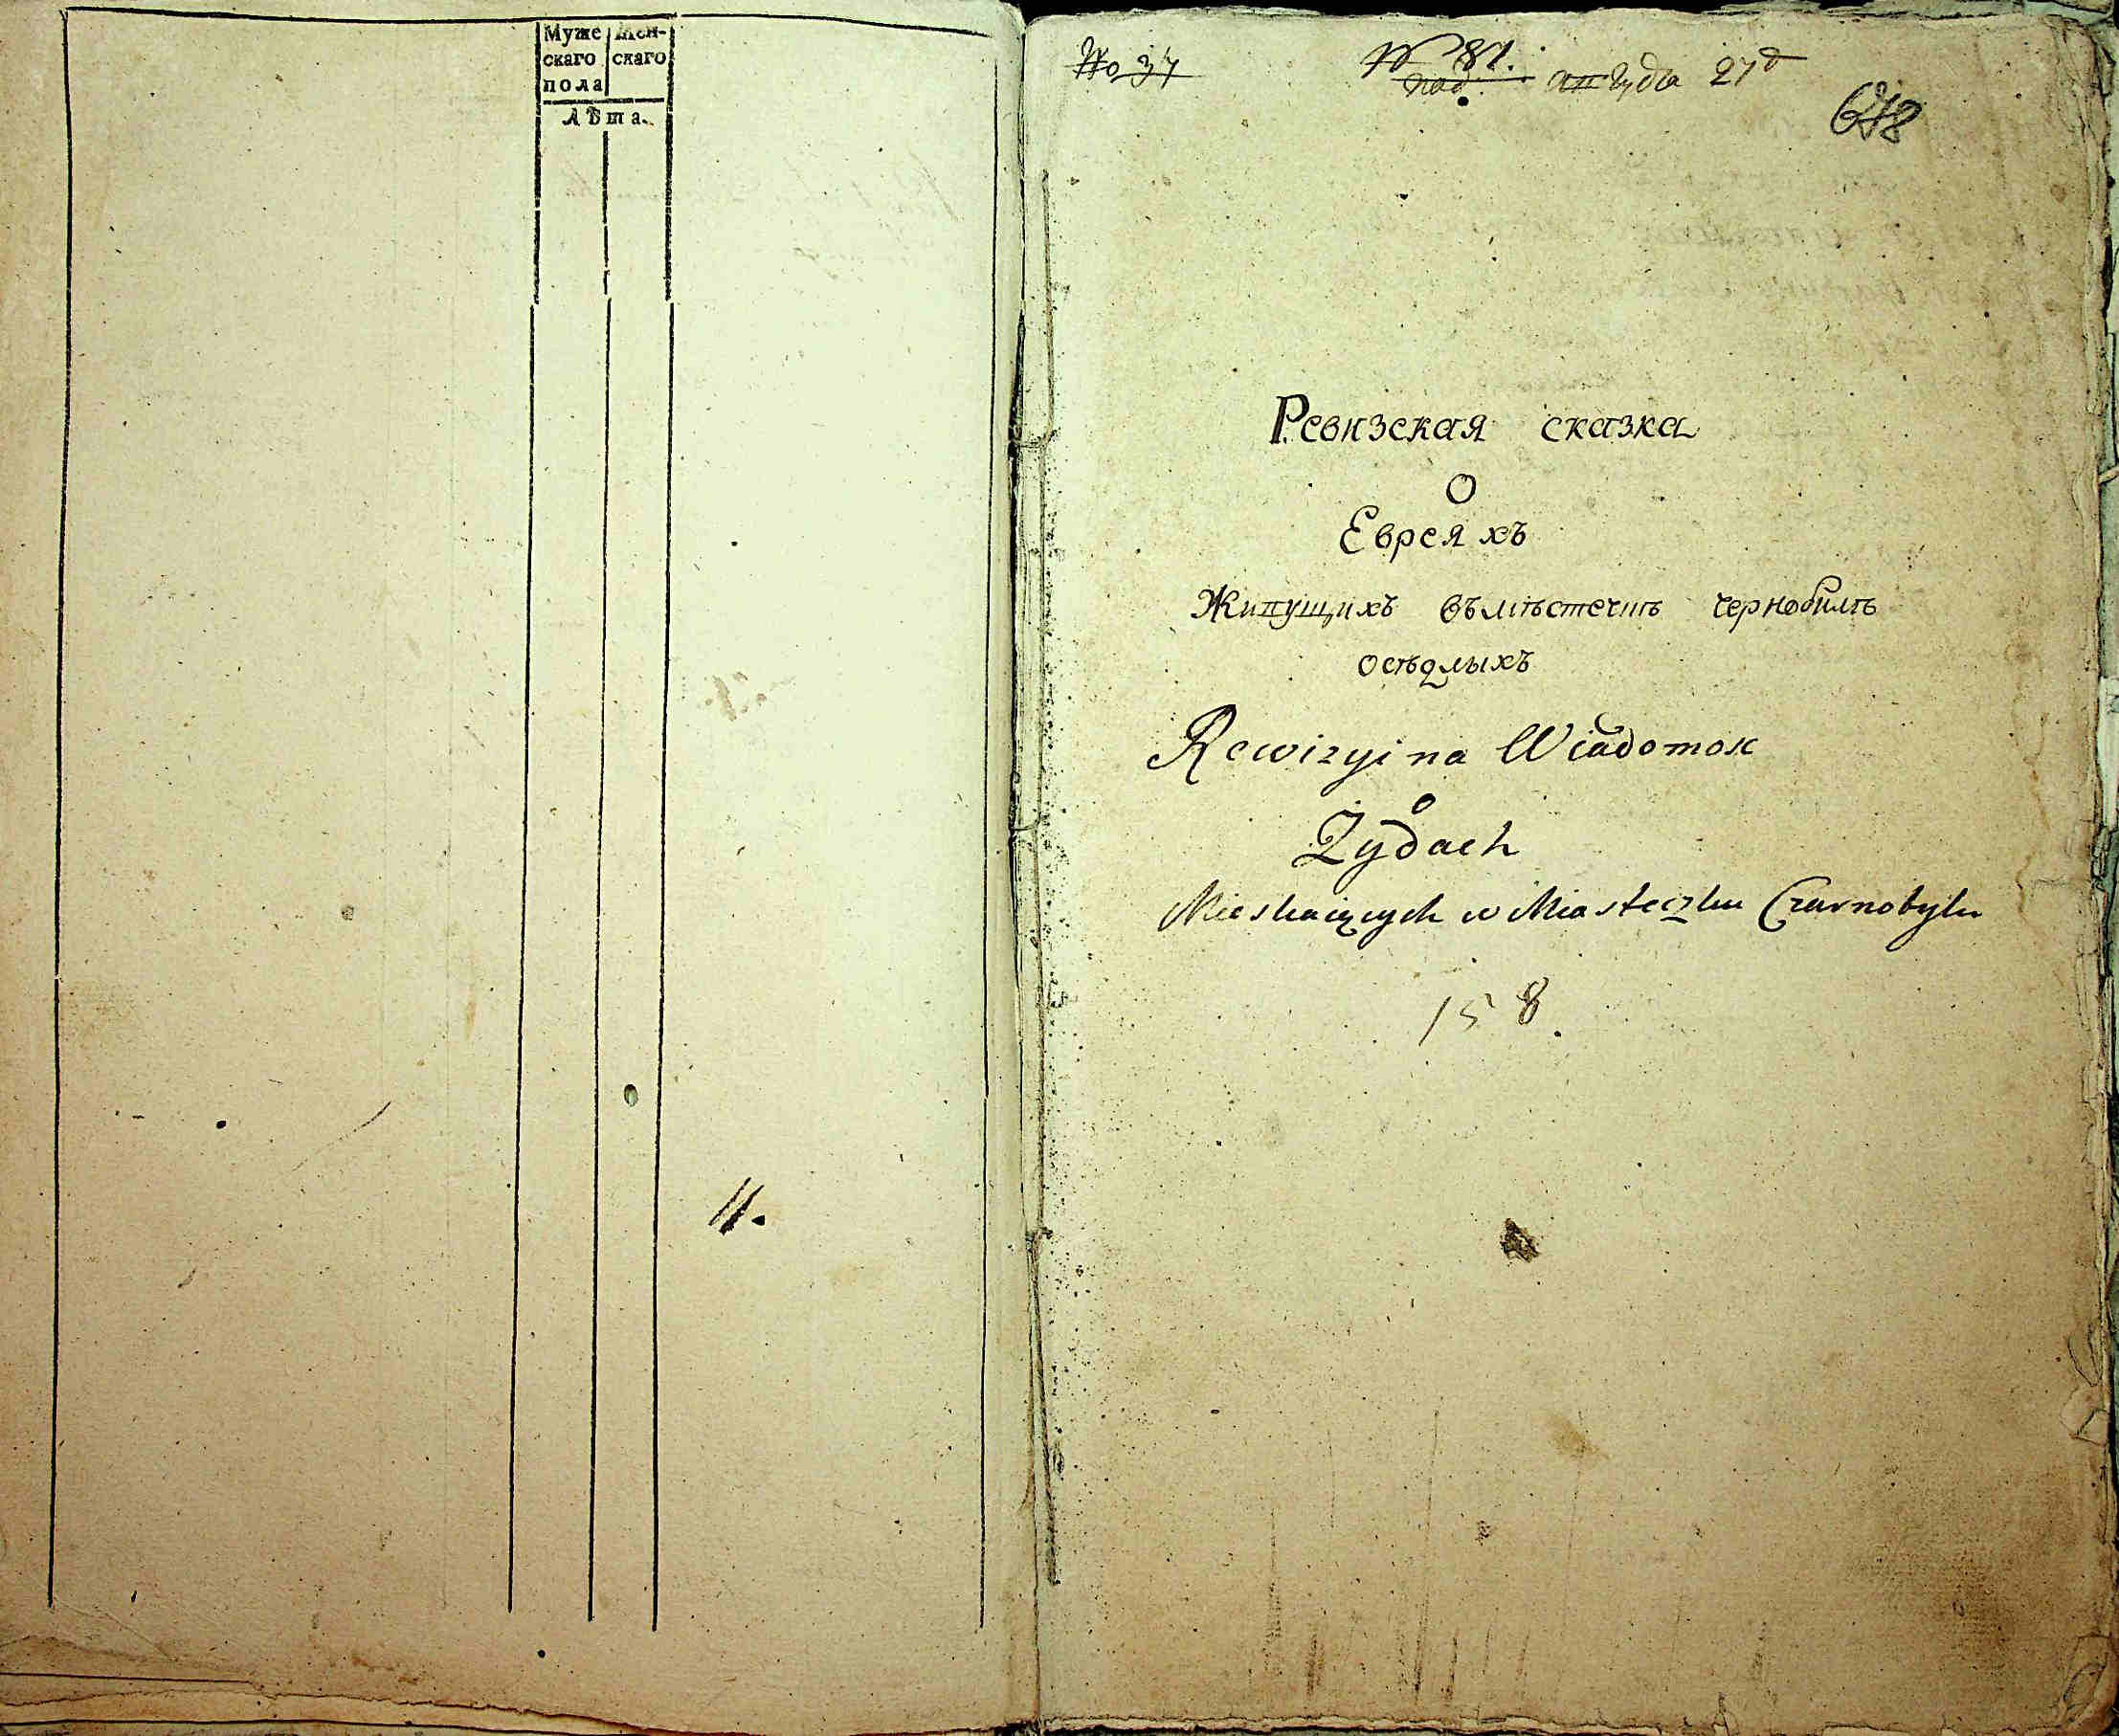 Муже
скаго
пола
Жен-
скаго
Лѣта.
11.
No 37
№ 81.
под. 27
Ревизская сказка
О
Евреяхъ
Живущихъ въмѣстечкѣ чернобилѣ
осѣдлыхъ
Rewizyina Wiadomosc
o
Zydach
Mieskaiących w Miasteczku Czarnobylu
158.